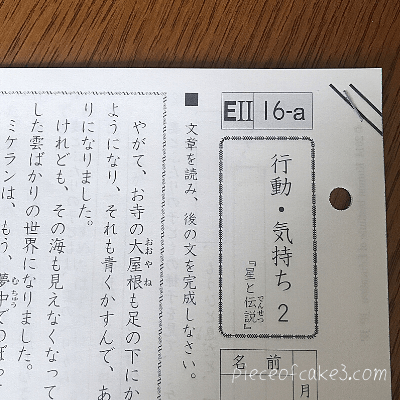 EⅡ 16-a
行動・気持ち 2
『星と伝説』
でんせつ
名前
月
■ 文章を読み、後の文を完成しなさい。
やがて、お寺の大屋根も足の下にか
おおやね
ようになり、それも青くかすんで、あ
りになりました。
けれども、その海も見えなくなって
した雲ばかりの世界になりました。
ミケランは、もう、夢中でのぼって
むちゅう
pieceofcake3.com